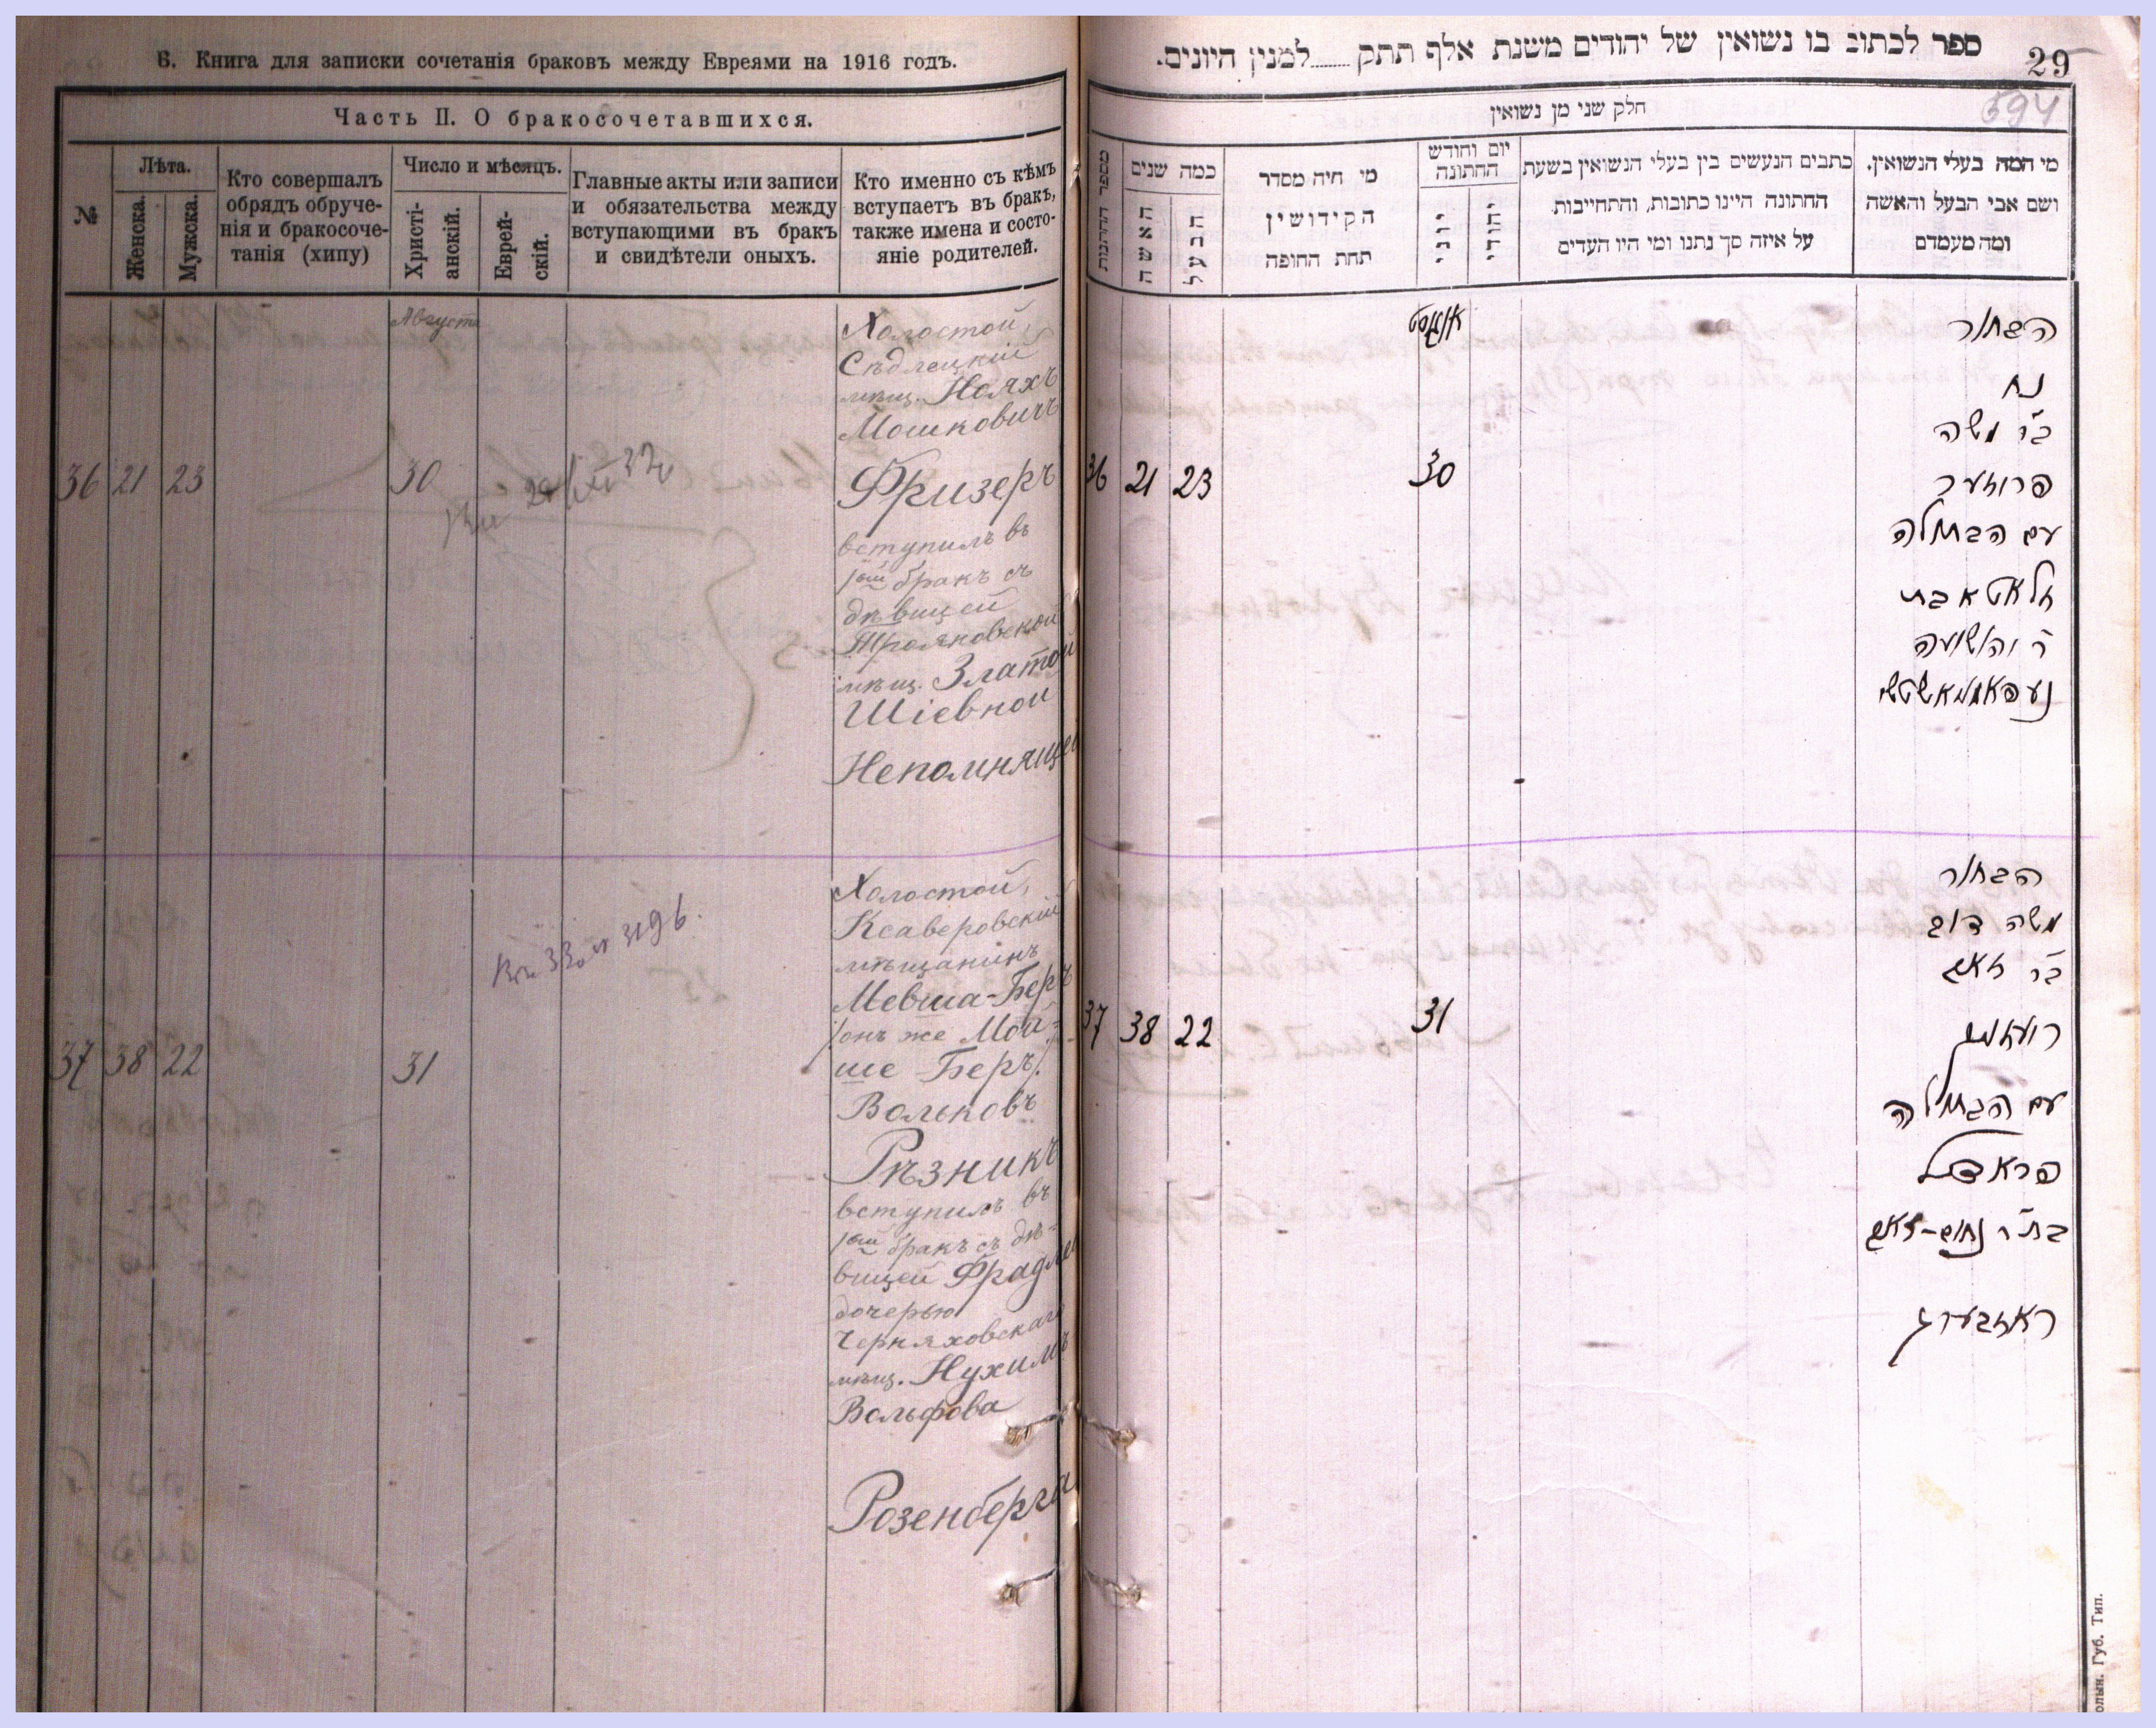 Б. Книга для записки сочетанія браковъ между Евреями на 1916 годъ.
Часть II. О бракосочетавшихся.
№
Лѣта.
Женска.
Мужска.
Кто совершалъ
обрядъ обруче-
нія и бракосоче-
танія (хипу)
Число и мѣсяцъ.
Христі-
анскій.
Еврей-
скій.
Главные акты или записи
и обязательства между
вступающими въ бракъ
и свидѣтели оныхъ.
Кто именно съ кѣмъ
вступаетъ въ бракъ,
также имена и состо-
яніе родителей.
Августа
36 21 23 30
Холостой,
Сѣдлецкій
мѣщ. Нояхъ
Мошковичъ
Фризеръ
вступилъ въ
1ый бракъ съ
дѣвицей
Трояновской
мѣщ. Златой
Шіевной
Непомнящей
37 38 22 31
Холостой,
Ксаверовскій
мѣщанинъ
Мевша-Беръ
/онъ же Мой-
ше Беръ/.
Вольковъ
Рѣзникъ
вступилъ въ
1ый бракъ съ дѣ-
вицей Фрадлей
дочерью
Черняховскаго
мѣщ. Нухимъ
Вольфова
Розенберга
ספר לכתוב בו נשואין של יהודים משנת אלף תתק למנין היונים.
29
594
חלק שני מן נשואין
מספר החתונות
כמה שנים
האשה
הבעל
מי היה מסדר
הקידושין
תחת החופה
יום וחודש
החתונה
יוני
יהודי
כתבים הנעשים בין בעלי הנשואין בשעת
החתונה היינו כתובות, והתחייבות
על איזה סך נתנו ומי היו העדים
מי המה בעלי הנשואין,
ושם אבי הבעל והאשה
ומה מעמדם
אווגוסט
36 21 23 30
הבחור
נח
ב״ר משה
פריזער
עם הבתולה
זלאטא בת
ר׳ יהושועה
37 38 22 31
הבחור
משה דוב
ב״ר זאב
רעזניק
עם הבתולה
פראדל
בת״ר נחום-זאב
ראזבערג
олын. Губ. Тип.